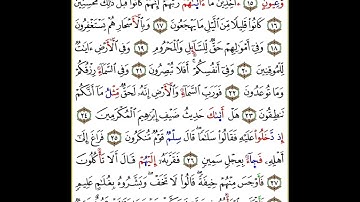 وَعُيُونٍ ١٥ ءَاخِذِينَ مَآ ءَاتَىٰهُمْ رَبُّهُمْ إِنَّهُمْ كَانُوا۟ قَبْلَ ذَٰلِكَ مُحْسِنِينَ
١٦ كَانُوا۟ قَلِيلًا مِّنَ ٱلَّيْلِ مَا يَهْجَعُونَ ١٧ وَبِٱلْأَسْحَارِ هُمْ يَسْتَغْفِرُونَ
١٨ وَفِىٓ أَمْوَٰلِهِمْ حَقٌّ لِّلسَّآئِلِ وَٱلْمَحْرُومِ ١٩ وَفِى ٱلْأَرْضِ ءَايَٰتٌ
لِّلْمُوقِنِينَ ٢٠ وَفِىٓ أَنفُسِكُمْ أَفَلَا تُبْصِرُونَ ٢١ وَفِى ٱلسَّمَآءِ رِزْقُكُمْ
وَمَا تُوعَدُونَ ٢٢ فَوَرَبِّ ٱلسَّمَآءِ وَٱلْأَرْضِ إِنَّهُۥ لَحَقٌّ مِّثْلَ مَآ أَنَّكُمْ
تَنطِقُونَ ٢٣ هَلْ أَتَىٰكَ حَدِيثُ ضَيْفِ إِبْرَٰهِيمَ ٱلْمُكْرَمِينَ ٢٤
إِذْ دَخَلُوا۟ عَلَيْهِ فَقَالُوا۟ سَلَٰمًا قَالَ سَلَٰمٌ قَوْمٌ مُّنكَرُونَ ٢٥ فَرَاغَ إِلَىٰٓ
أَهْلِهِۦ فَجَآءَ بِعِجْلٍ سَمِينٍ ٢٦ فَقَرَّبَهُۥٓ إِلَيْهِمْ قَالَ أَلَا تَأْكُلُونَ
٢٧ فَأَوْجَسَ مِنْهُمْ خِيفَةً قَالُوا۟ لَا تَخَفْ وَبَشَّرُوهُ بِغُلَٰمٍ عَلِيمٍ